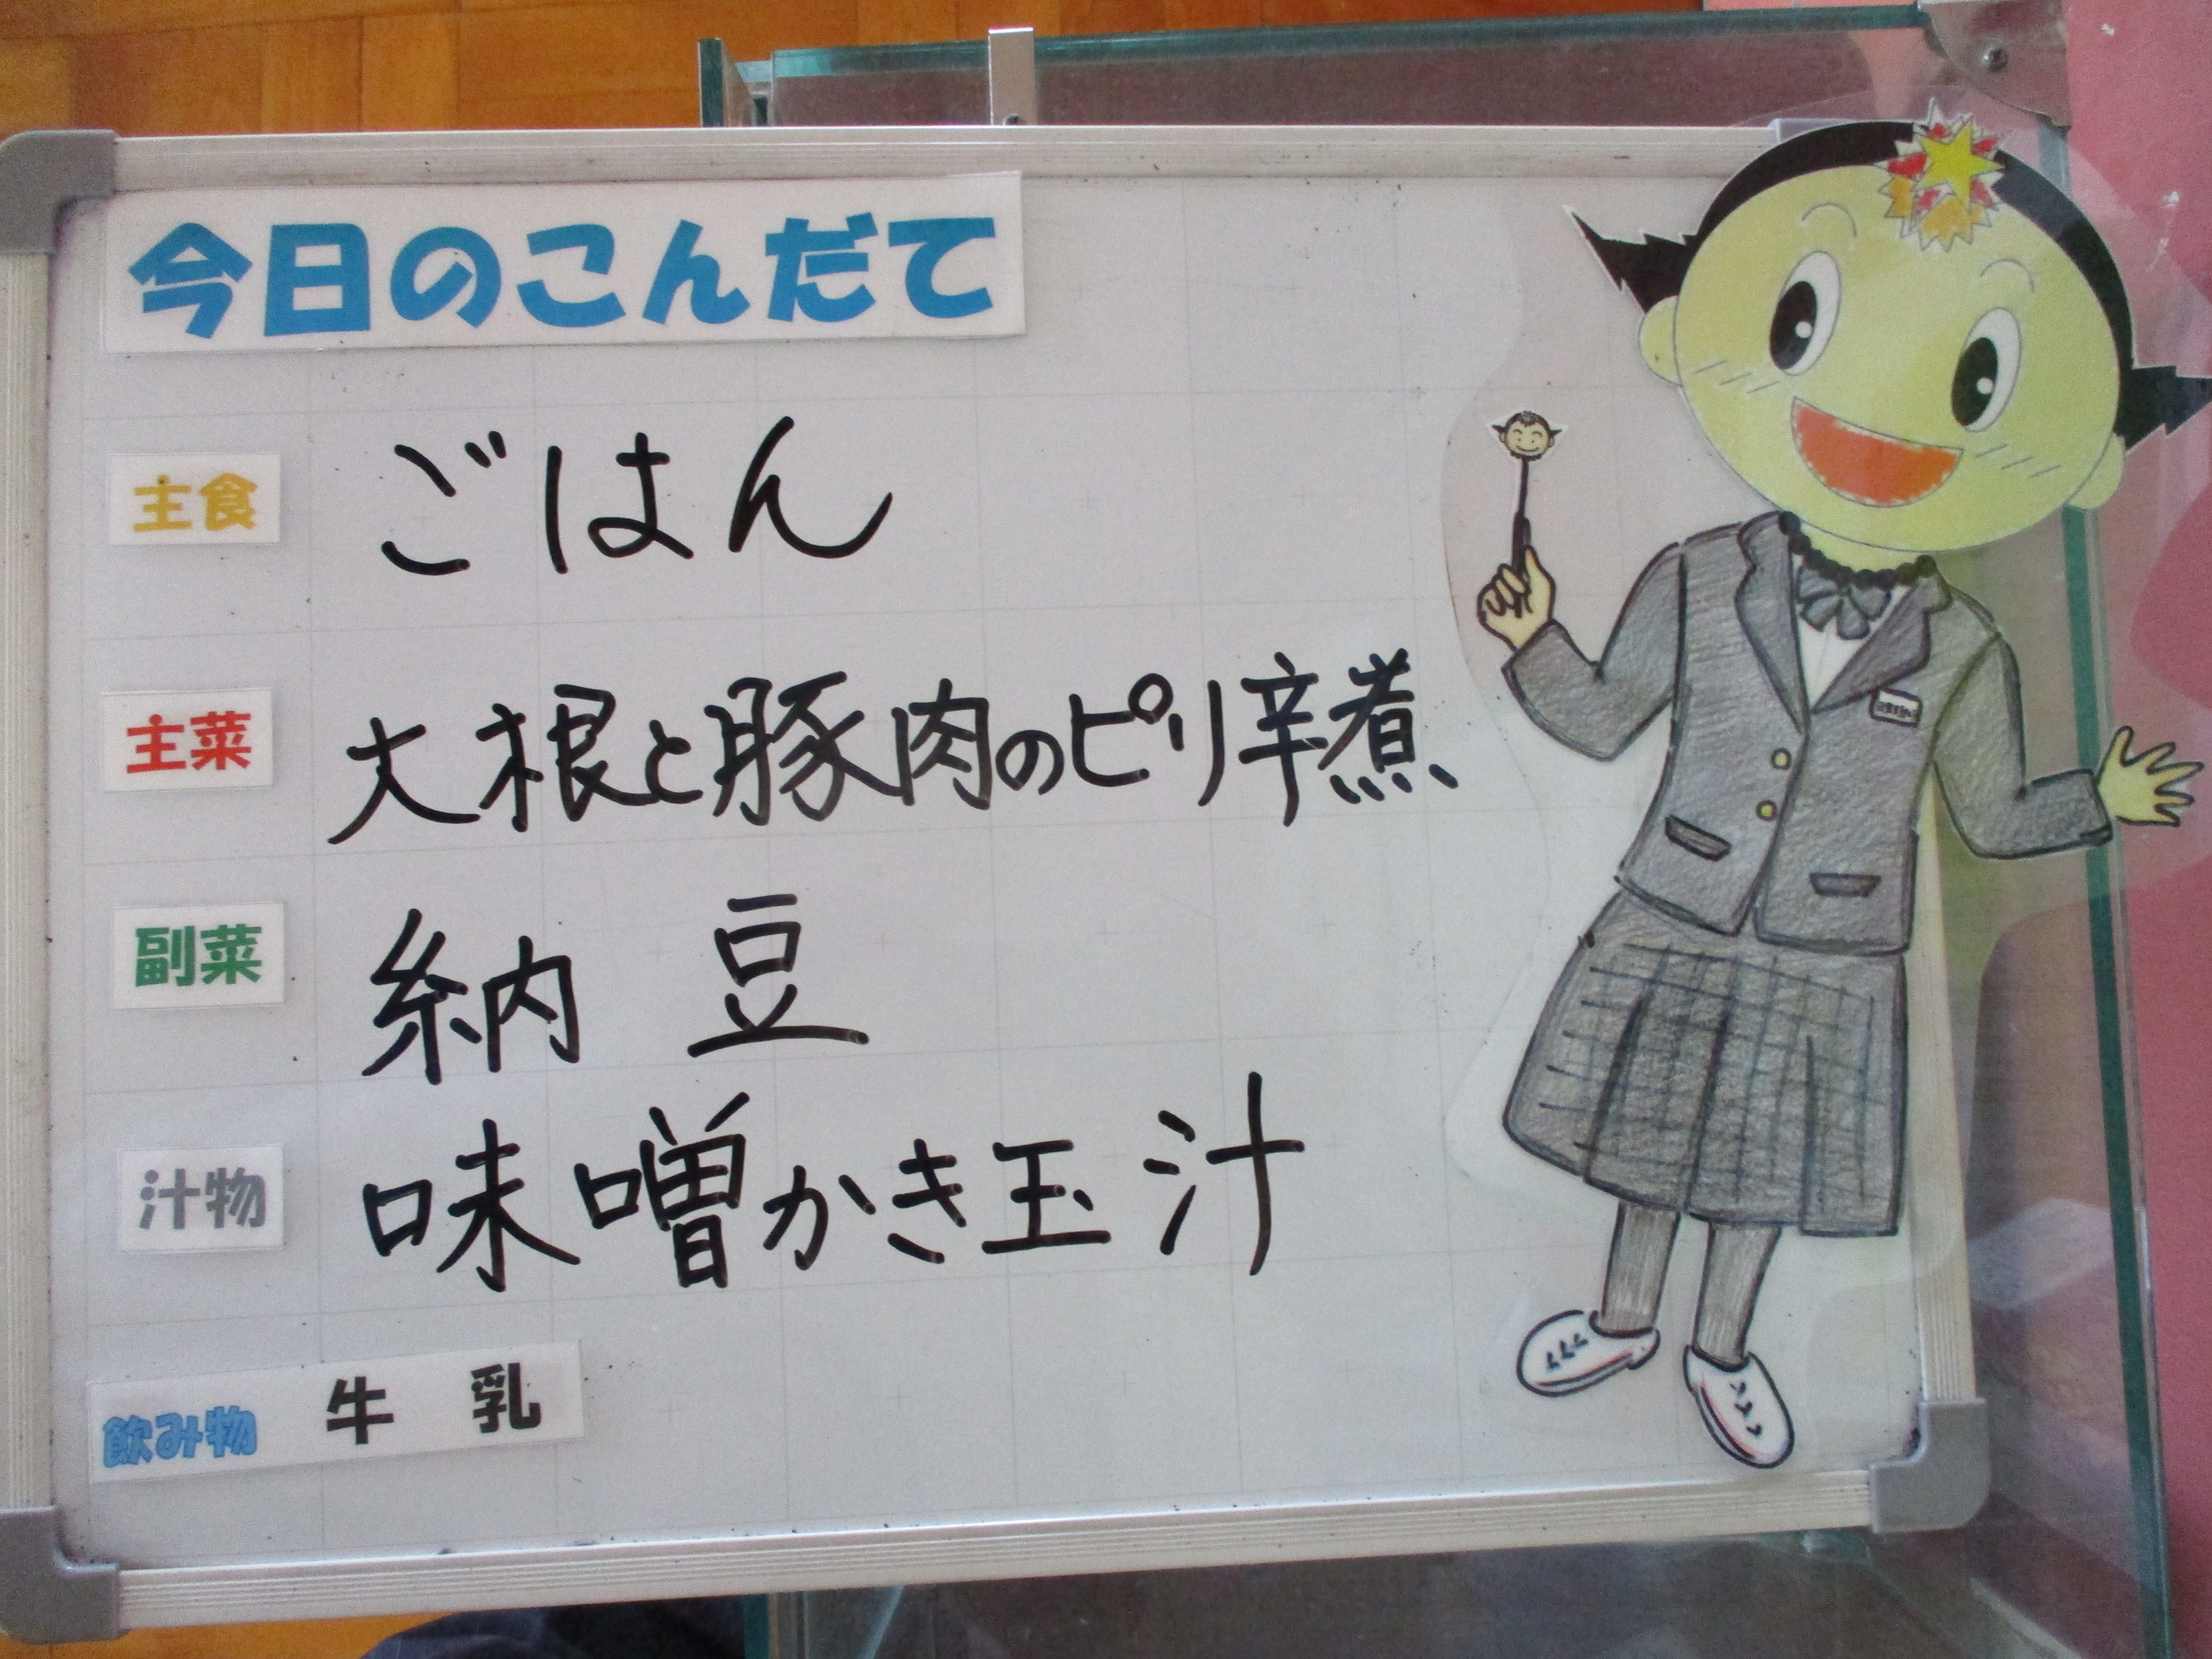 今日のこんだて
主食 ごはん
主菜 大根と豚肉のピリ辛煮
副菜 納豆
汁物 味噌かき玉汁
飲み物 牛乳